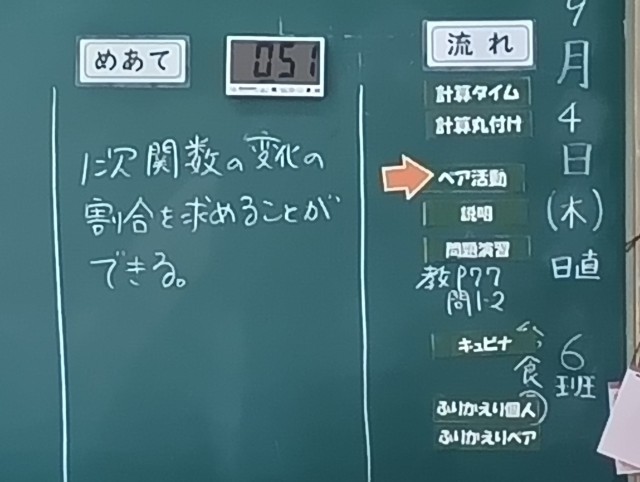 めあて
051
1次関数の変化の
割合を求めることが
できる。
流れ
計算タイム
計算丸付け
ペア活動
説明
問題演習
教P77
問1-2
キュビナ
ふりかえり個人
ふりかえりペア
9月4日(木)
日直
6班